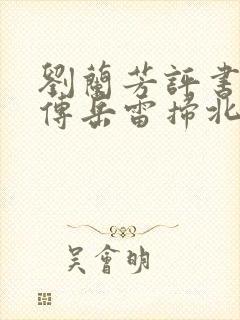 劉蘭芳評書
傳岳雷掃北
吳會明